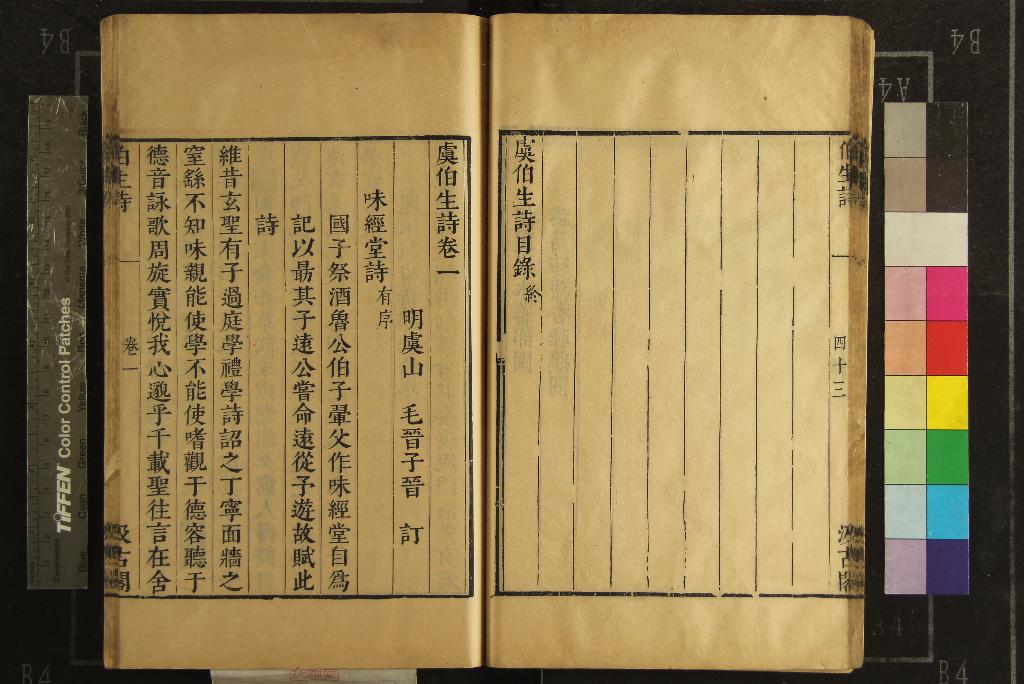 伯生詩
四十三
汲古閣
虞伯生詩目錄終
虞伯生詩卷一
明虞山 毛晉子晉 訂
味經堂詩有序
國子祭酒魯公伯子翬父作味經堂自爲
記以勗其子遠公嘗命遠從予遊故賦此
詩
維昔玄聖有子過庭學禮學詩詔之丁寧面牆之
窒繇不知味親能使學不能使嗜觀于德容聽于
德音詠歌周旋實悅我心邈乎千載聖往言在舍
伯生詩
卷一
汲古閣
B4
A4
B4
A4
B4
B4
TIFFEN Color Control Patches
Blue
Cyan
Green
Yellow
Red
Magenta
White
3/Color
Black
Centimetres
Inches